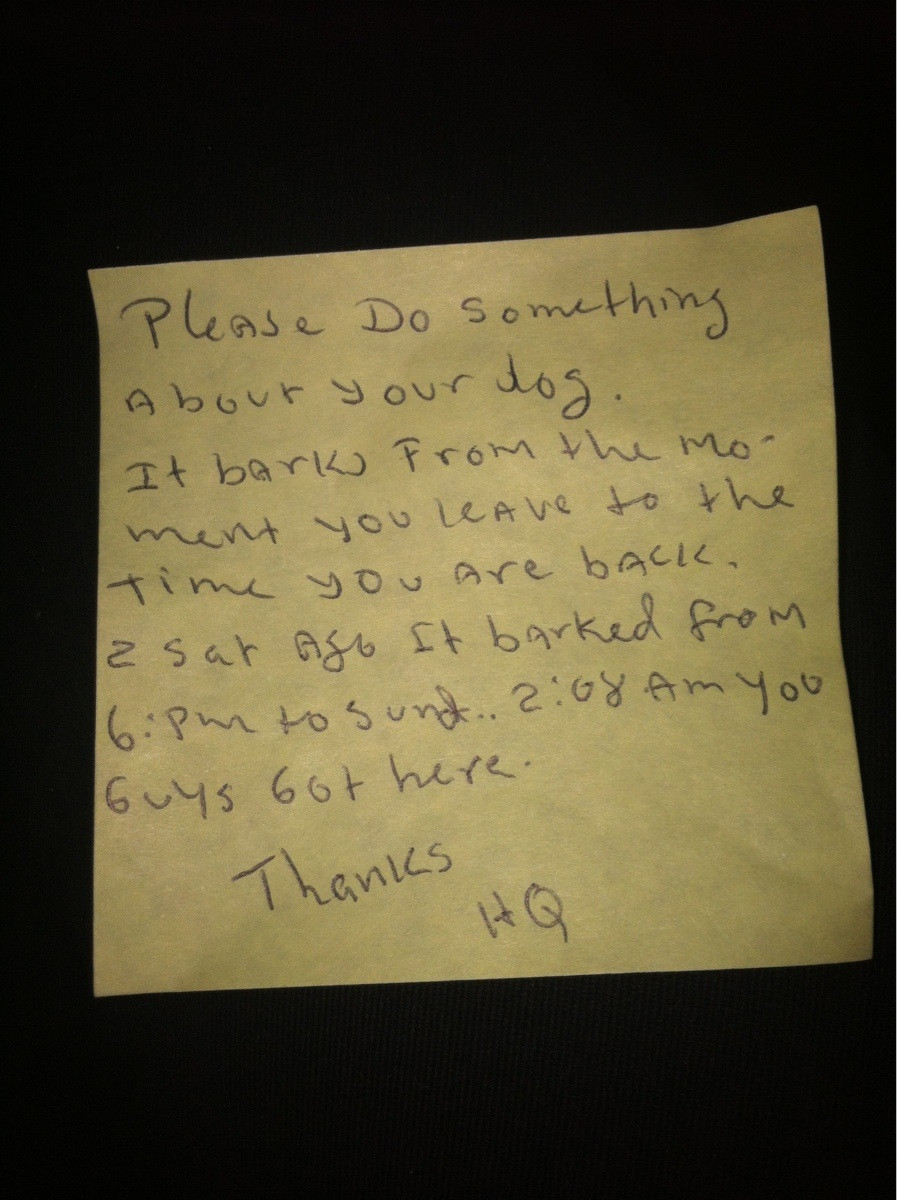 Please Do something
About your dog.
It barks From the mo-
ment you leave to the
time you are back.
2 Sat Ago It barked from
6:pm to Sund.. 2:08 Am you
Guys Got here.
Thanks
HQ